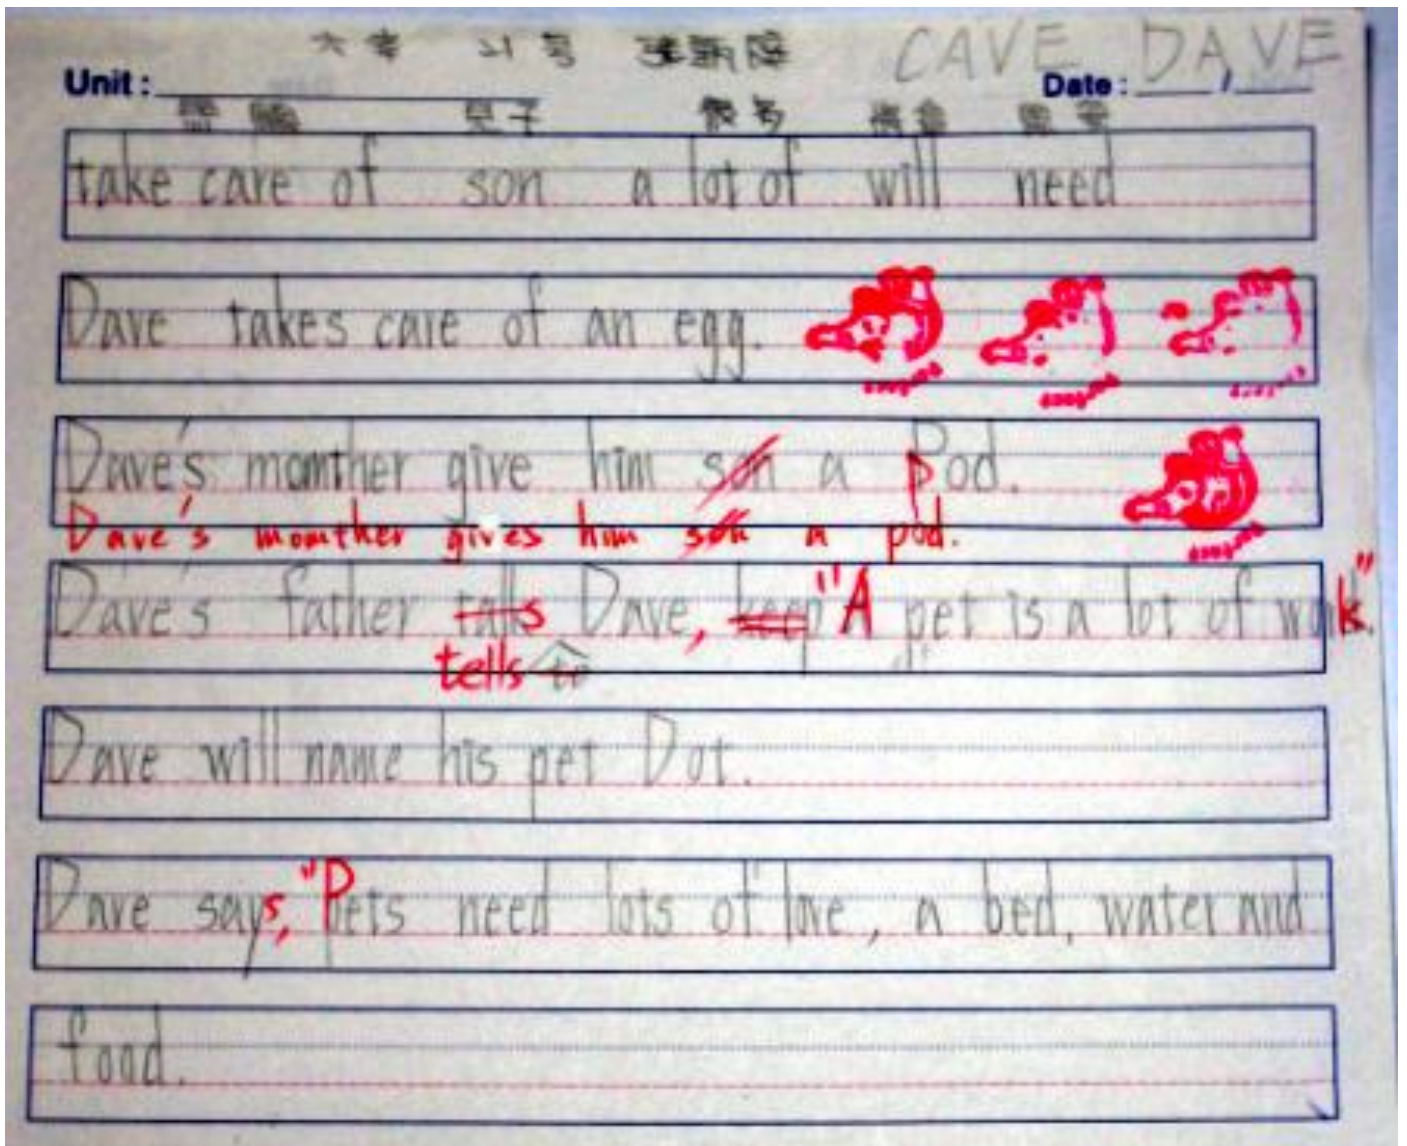 CAVE DAVE
Unit : Date : /
兒子 很多
take care of son a lot of will need
Dave takes care of an egg.
Dave's momther give him son a Pod.
Dave's momther gives him son a pod.
Dave's father talks Dave, keep "A pet is a lot of work".
tells to
Dave will name his pet Dot.
Dave says, "Pets need lots of love, a bed, water and
food.